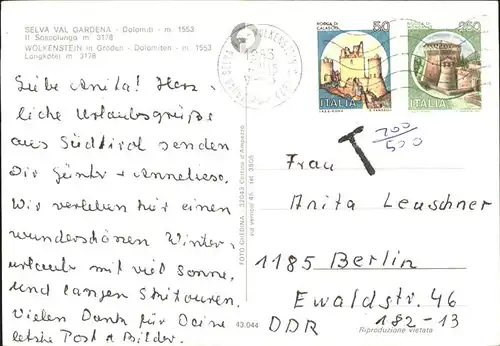 SELVA VAL GARDENA - Dolomiti - m. 1553
Il Sassolungo m. 3178
WOLKENSTEIN in Gröden - Dolomiten - m. 1553
Langkofel m. 3178
Liebe Anita! Herz-
liche Urlaubsgrüße
aus Südtirol senden
Dir Günter + Anneliese.
Wir verleben hier einen
wunderschönen Winter-
urlaub mit viel Sonne
und langen Skitouren.
Vielen Dank für Deine
letzte Post + Bilder.
FOTO GHEDINA - 32043 Cortina d'Ampezzo
43.044
ROCCA DI
CALASCIO
50
ITALIA
250
ITALIA
T
200/500
Frau
Anita Leuschner
1185 Berlin
Ewaldstr. 46
182-13
DDR
Riproduzione vietata